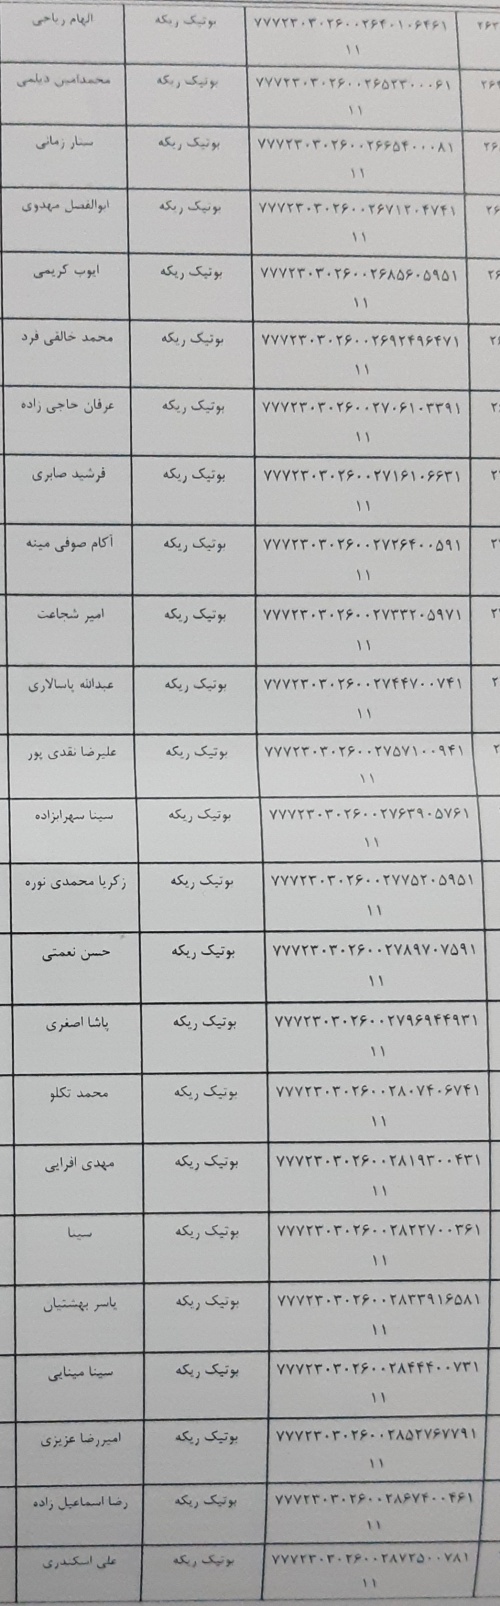 ۷۷۷۲۳۰۳۰۲۶۰۰۲۶۴۰۱۰۶۴۶۱ بوتیک ریکه الهام ریاحی
۱۱
۷۷۷۲۳۰۳۰۲۶۰۰۲۶۵۳۳۰۰۰۶۱ بوتیک ریکه محمدامین دیلمی
۱۱
۷۷۷۲۳۰۳۰۲۶۰۰۲۶۶۵۴۰۰۰۸۱ بوتیک ریکه ستار زمانی
۱۱
۷۷۷۲۳۰۳۰۲۶۰۰۲۶۷۱۲۰۴۷۴۱ بوتیک ریکه ابوالفضل مهدوی
۱۱
۷۷۷۲۳۰۳۰۲۶۰۰۲۶۸۵۶۰۵۹۵۱ بوتیک ریکه ایوب کریمی
۱۱
۷۷۷۲۳۰۳۰۲۶۰۰۲۶۹۲۴۹۶۴۷۱ بوتیک ریکه محمد خالقی فرد
۱۱
۷۷۷۲۳۰۳۰۲۶۰۰۲۷۰۶۱۰۳۳۹۱ بوتیک ریکه عرفان حاجی زاده
۱۱
۷۷۷۲۳۰۳۰۲۶۰۰۲۷۱۶۱۰۶۶۳۱ بوتیک ریکه فرشید صابری
۱۱
۷۷۷۲۳۰۳۰۲۶۰۰۲۷۲۶۴۰۰۵۹۱ بوتیک ریکه آکام صوفی مینه
۱۱
۷۷۷۲۳۰۳۰۲۶۰۰۲۷۳۳۲۰۵۹۷۱ بوتیک ریکه امیر شجاعت
۱۱
۷۷۷۲۳۰۳۰۲۶۰۰۲۷۴۴۷۰۰۷۴۱ بوتیک ریکه عبدالله پاسالاری
۱۱
۷۷۷۲۳۰۳۰۲۶۰۰۲۷۵۷۱۰۰۹۴۱ بوتیک ریکه علیرضا نقدی پور
۱۱
۷۷۷۲۳۰۳۰۲۶۰۰۲۷۶۳۹۰۵۷۶۱ بوتیک ریکه سینا سهرابزاده
۱۱
۷۷۷۲۳۰۳۰۲۶۰۰۲۷۷۵۲۰۵۹۵۱ بوتیک ریکه زکریا محمدی نوره
۱۱
۷۷۷۲۳۰۳۰۲۶۰۰۲۷۸۹۷۰۷۵۹۱ بوتیک ریکه حسن نعمتی
۱۱
۷۷۷۲۳۰۳۰۲۶۰۰۲۷۹۶۹۴۴۹۳۱ بوتیک ریکه پاشا اصغری
۱۱
۷۷۷۲۳۰۳۰۲۶۰۰۲۸۰۷۴۰۶۷۴۱ بوتیک ریکه محمد تکلو
۱۱
۷۷۷۲۳۰۳۰۲۶۰۰۲۸۱۹۳۰۰۴۳۱ بوتیک ریکه مهدی افرایی
۱۱
۷۷۷۲۳۰۳۰۲۶۰۰۲۸۲۲۷۰۰۳۶۱ بوتیک ریکه سینا
۱۱
۷۷۷۲۳۰۳۰۲۶۰۰۲۸۳۳۹۱۶۵۸۱ بوتیک ریکه یاسر بهشتیان
۱۱
۷۷۷۲۳۰۳۰۲۶۰۰۲۸۴۴۴۰۰۷۳۱ بوتیک ریکه سینا مینایی
۱۱
۷۷۷۲۳۰۳۰۲۶۰۰۲۸۵۲۷۶۷۷۹۱ بوتیک ریکه امیررضا عزیزی
۱۱
۷۷۷۲۳۰۳۰۲۶۰۰۲۸۶۷۴۰۰۴۶۱ بوتیک ریکه رضا اسماعیل زاده
۱۱
۷۷۷۲۳۰۳۰۲۶۰۰۲۸۷۳۵۰۰۷۸۱ بوتیک ریکه علی اسکندری
۱۱